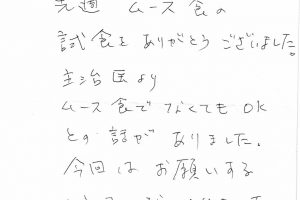 先週 ムース食の
試食を ありがとう ございました。
主治医より
ムース食で なくても OK
との 話が ありました。
今回は お願いする